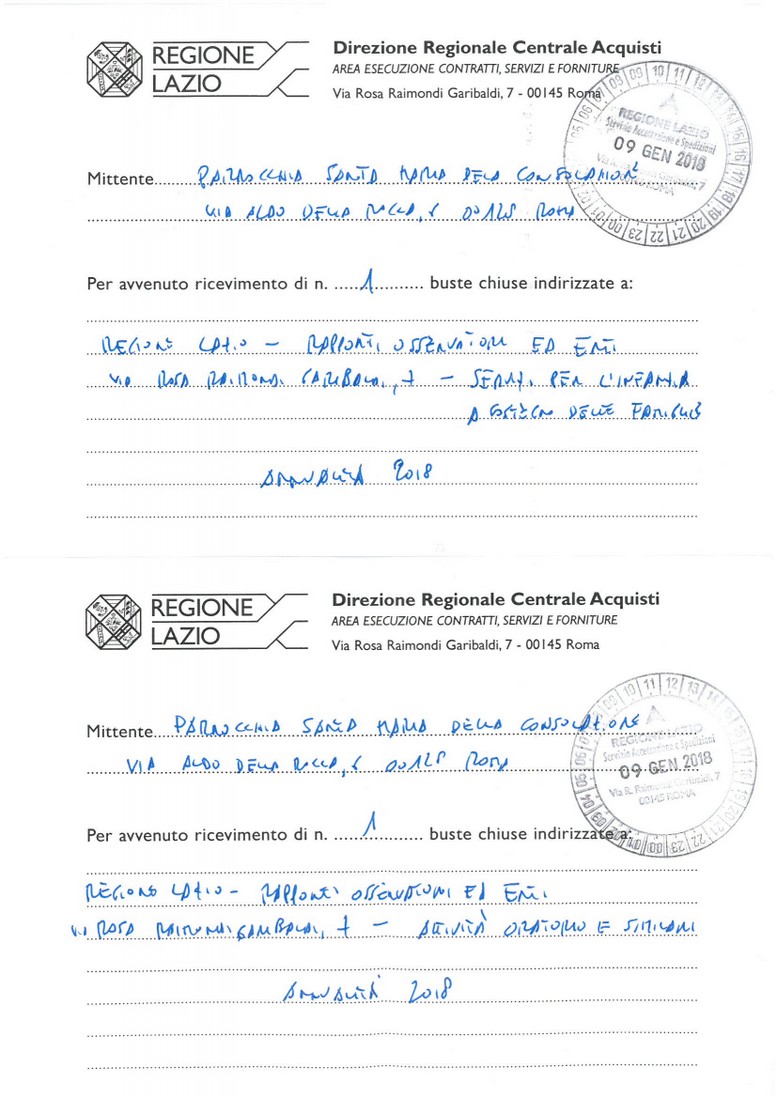 REGIONE
LAZIO
Direzione Regionale Centrale Acquisti
AREA ESECUZIONE CONTRATTI, SERVIZI E FORNITURE
Via Rosa Raimondi Garibaldi, 7 - 00145 Roma
REGIONE LAZIO
Servizio Accettazione e Spedizioni
09 GEN 2018
Mittente PARROCCHIA SANTA MARIA DELLA CONSOLAZIONE
VIA ALDO DELLA ROCCA, 6 00128 ROMA
Per avvenuto ricevimento di n. 1 buste chiuse indirizzate a:
REGIONE LAZIO - RAPPORTI OSSERVATORI ED ENTI
VIA ROSA RAIMONDI GARIBALDI, 7 - SERVIZI PER L'INFANZIA
A SOSTEGNO DELLE FAMIGLIE
ANNUALITÀ 2018
REGIONE
LAZIO
Direzione Regionale Centrale Acquisti
AREA ESECUZIONE CONTRATTI, SERVIZI E FORNITURE
Via Rosa Raimondi Garibaldi, 7 - 00145 Roma
REGIONE LAZIO
Servizio Accettazione e Spedizioni
09 GEN 2018
Via R. Raimondi Garibaldi, 7
00145 ROMA
Mittente PARROCCHIA SANTA MARIA DELLA CONSOLAZIONE
VIA ALDO DELLA ROCCA, 6 00128 ROMA
Per avvenuto ricevimento di n. 1 buste chiuse indirizzate a:
REGIONE LAZIO - RAPPORTI OSSERVATORI ED ENTI
VIA ROSA RAIMONDI GARIBALDI, 7 - ATTIVITÀ ORATORIO E SIMILARI
ANNUALITÀ 2018